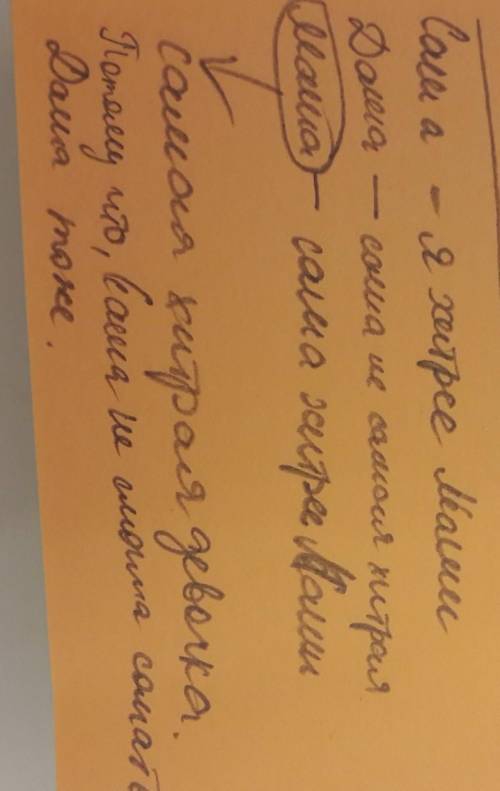 Саша - Я хитрее Маши
Даша — саша не самая хитрая
Маша — сама хитрее Маши
самая хитрая девочка.
Потому что, Саша не могла солгать
Даша тоже.